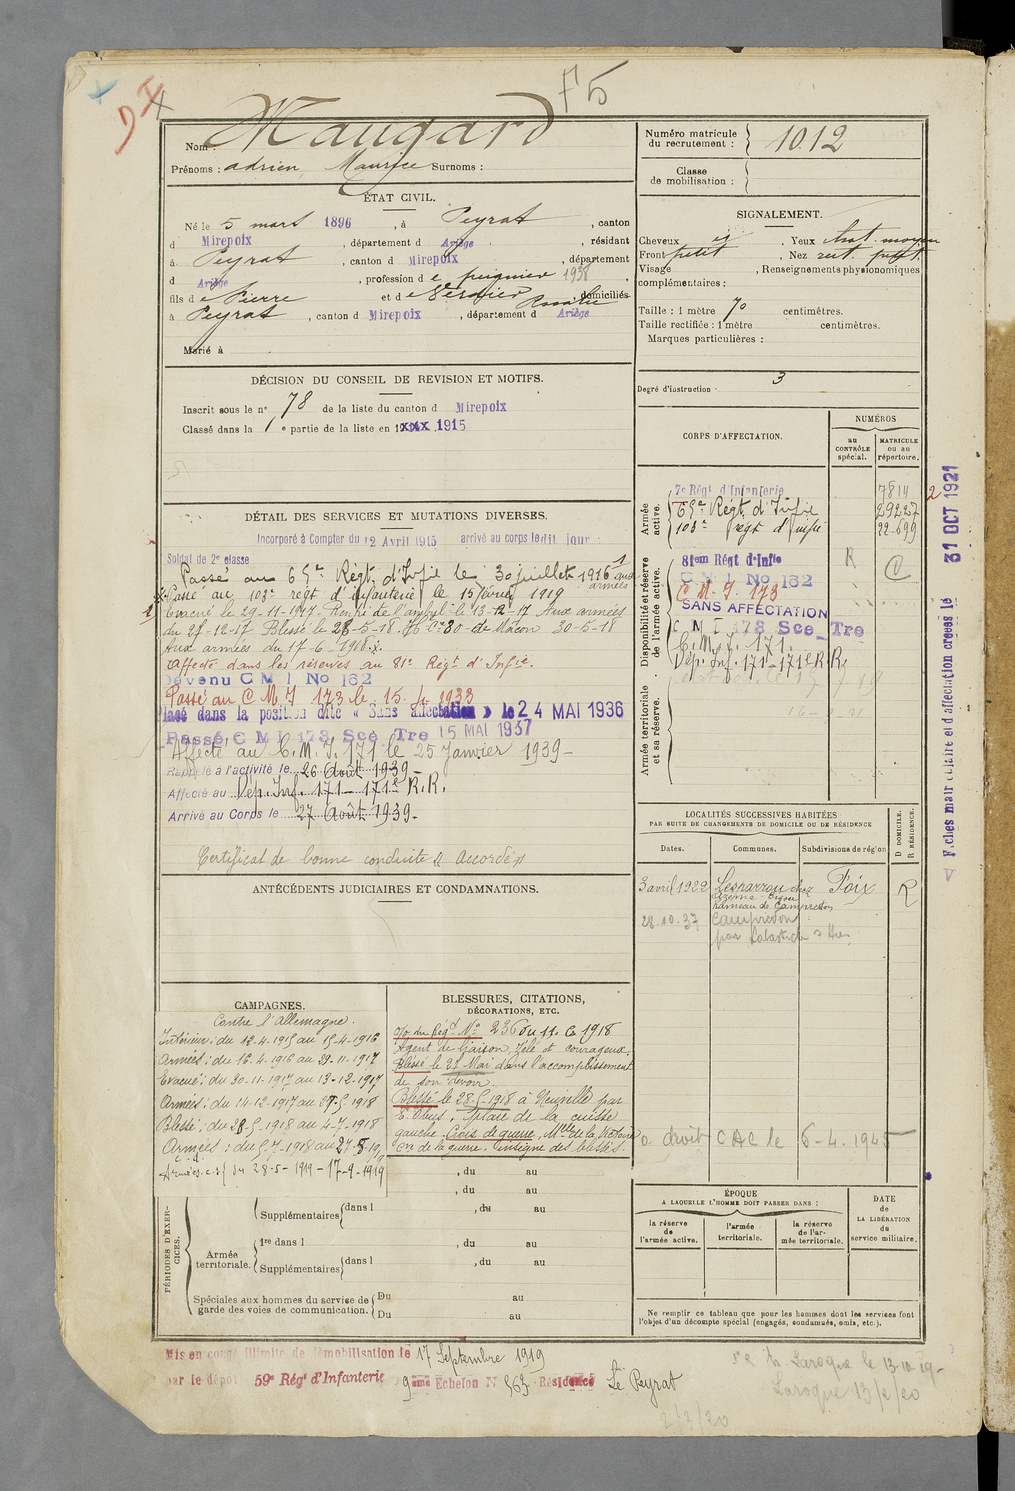 F5
Nom : Maugard
Prénoms : adrien, Maurice Surnoms :
Numéro matricule du recrutement : 1012
Classe de mobilisation :
ÉTAT CIVIL.
Né le 5 mars 1896, à Peyrat, canton
d Mirepoix, département d Ariège, résidant
à Peyrat, canton d Mirepoix, département
d Ariège, profession d e peignier 1938,
fils d e Pierre et d e Rosalie, domiciliés
à Peyrat, canton d Mirepoix, département d Ariège
Marié à
SIGNALEMENT.
Cheveux Yeux chat. moyen
Front petit, Nez rect. petit
Visage, Renseignements physionomiques
complémentaires :
Taille : 1 mètre 70 centimètres.
Taille rectifiée : 1 mètre centimètres.
Marques particulières :
Degré d'instruction : 3
DÉCISION DU CONSEIL DE REVISION ET MOTIFS.
Inscrit sous le n° 78 de la liste du canton d Mirepoix
Classé dans la 1e partie de la liste en 1915
DÉTAIL DES SERVICES ET MUTATIONS DIVERSES.
Incorporé à Compter du 12 Avril 1915 arrivé au corps ledit jour :
Soldat de 2e classe
Passé au 65e Régt d'Infie le 30 juillet 1916 aux armées
Passé au 103e régt d'infanterie le 15 février 1919
Evacué le 29-11-1917. Rentré de l'ambul. le 13-12-17 Aux armées
du 21-12-17 Blessé le 28-5-18 30 de Macon 30-5-18
Aux armées du 17-6-1918.
Affecté dans les réserves au 81e Régt d'Infie.
Devenu C M I No 162
Passé au C.M.I 173 le 15. 4. 1933
Placé dans la position dite « Sans affectation » le 24 MAI 1936
Passé C M I 173 Sce Tre 15 MAI 1937
Affecté au C.M.I. 171 le 25 Janvier 1939-
Rappelé à l'activité le 26 Août 1939-
Affecté au Dép. Inf. 171 - 171e R.R.
Arrivé au Corps le 27 Août 1939-
Certificat de bonne conduite accordé
CORPS D'AFFECTATION.
NUMÉROS
au CONTRÔLE spécial.
MATRICULE ou au répertoire.
Armée active.
7e Régt d'Infanterie 7814
65e Régt d'Infie 29227
103e régt d'infie 22.699
Disponibilité et réserve de l'armée active.
81em Régt d'Infie R C
C M I No 162
C.M.I. 173
SANS AFFECTATION
C M I 173 Sce Tre
C.M.I. 171.
Dép. Inf. 171-171e R.R.
Armée territoriale et sa réserve.
2
Fiches matriculaire et d'affectation créées le 31 OCT 1921
LOCALITÉS SUCCESSIVES HABITÉES
PAR SUITE DE CHANGEMENTS DE DOMICILE OU DE RÉSIDENCE
Dates. Communes. Subdivisions de région
D DOMICILE. R RÉSIDENCE.
3 avril 1922 Lesparrou chez Foix R
hameau de Campredon
28.10.37 Campredon
par Labastide s/ Hers
a droit CAC le 6-4.1945
ANTÉCÉDENTS JUDICIAIRES ET CONDAMNATIONS.
CAMPAGNES.
Contre l'Allemagne.
Intérieur : du 12.4.1915 au 15.4.1916
Armées : du 16.4.1916 au 29.11.1917
Evacué : du 30-11-1917 au 13-12-1917
Armées : du 14.12.1917 au 27.5.1918
Blessé : du 28.5.1918 au 4-7-1918
Armées : du 5.7.1918 au 27-5-19
Armées du 28-5-1919-17-9-1919
BLESSURES, CITATIONS,
DÉCORATIONS, ETC.
O/ du Régt No 236 du 11. 6 1918
Agent de liaison, zélé et courageux,
Blessé le 28 Mai dans l'accomplissement
de son devoir.
Blessé le 28.5.1918 à Neuville par
E. Obus, plaie de la cuisse
gauche. Croix de guerre, Mlle de la Victoire
Cre de la guerre. Insigne des blessés.
, du au
, du au
PÉRIODES D'EXERCICES.
Supplémentaires dans l , du au
Armée territoriale.
1re dans l , du au
Supplémentaires dans l , du au
Spéciales aux hommes du service de garde des voies de communication.
Du au
Du au
ÉPOQUE
A LAQUELLE L'HOMME DOIT PASSER DANS :
la réserve de l'armée active.
l'armée territoriale.
la réserve de l'armée territoriale.
DATE de LA LIBÉRATION du service militaire.
Ne remplir ce tableau que pour les hommes dont les services font
l'objet d'un décompte spécial (engagés, condamnés, omis, etc.).
Mis en congé illimité de démobilisation le 17 Septembre 1919
par le dépôt 59e Régt d'Infanterie 9ème Echelon N 563 Résidence Le Peyrat
Laroque le 13-10-19-
Laroque 13/2/20
2/3/20